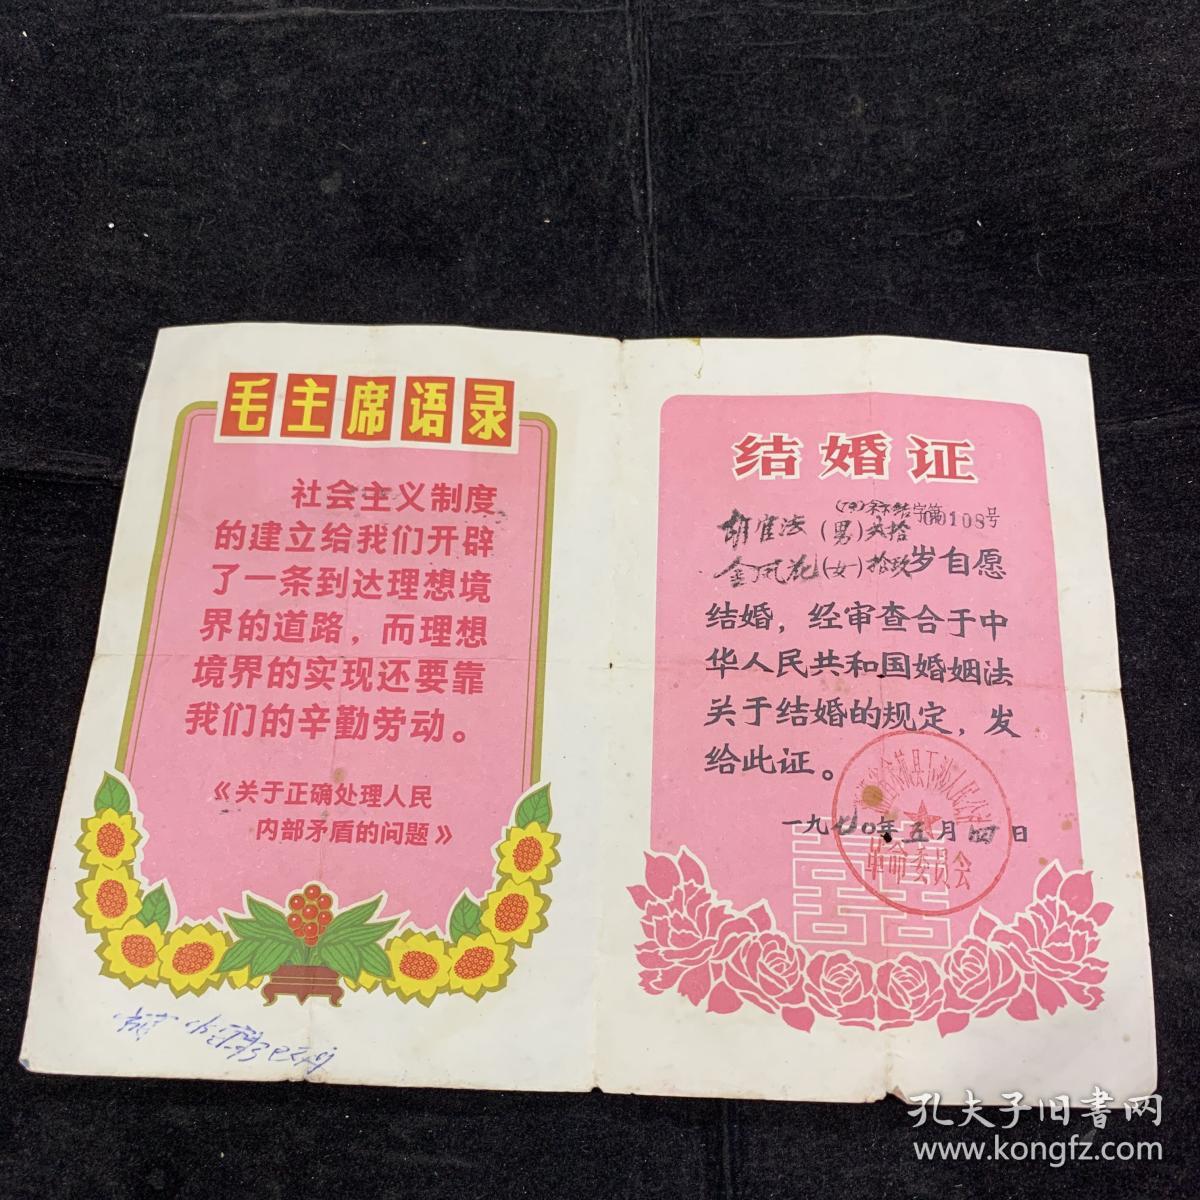 毛主席语录
社会主义制度
的建立给我们开辟
了一条到达理想境
界的道路，而理想
境界的实现还要靠
我们的辛勤劳动。
《关于正确处理人民
内部矛盾的问题》
结婚证
字第0108号
胡官法（男）贰拾
金凤花（女）拾玖岁自愿
结婚，经审查合于中
华人民共和国婚姻法
关于结婚的规定，发
给此证。
一九七〇年五月四日
革命委员会
孔夫子旧书网
www.kongfz.com